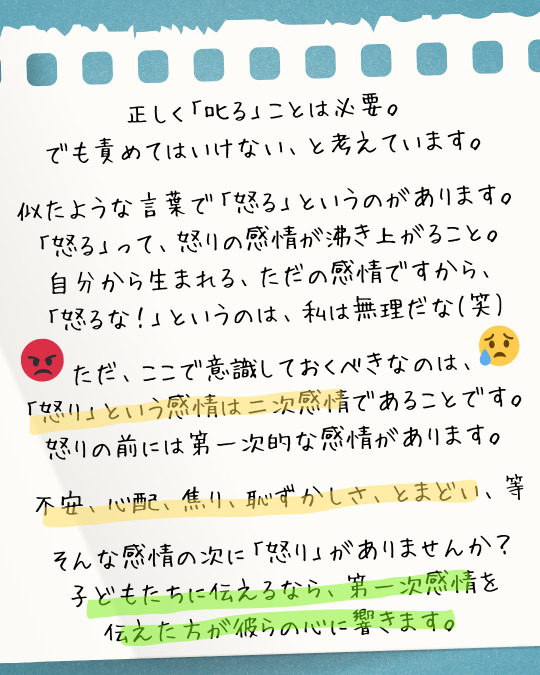 正しく「叱る」ことは必要。
でも責めてはいけない、と考えています。
似たような言葉で「怒る」というのがあります。
「怒る」って、怒りの感情が沸き上がること。
自分から生まれる、ただの感情ですから、
「怒るな！」というのは、私は無理だな(笑)
ただ、ここで意識しておくべきなのは、
「怒り」という感情は二次感情であることです。
怒りの前には第一次的な感情があります。
不安、心配、焦り、恥ずかしさ、とまどい、等
そんな感情の次に「怒り」がありませんか？
子どもたちに伝えるなら、第一次感情を
伝えた方が彼らの心に響きます。